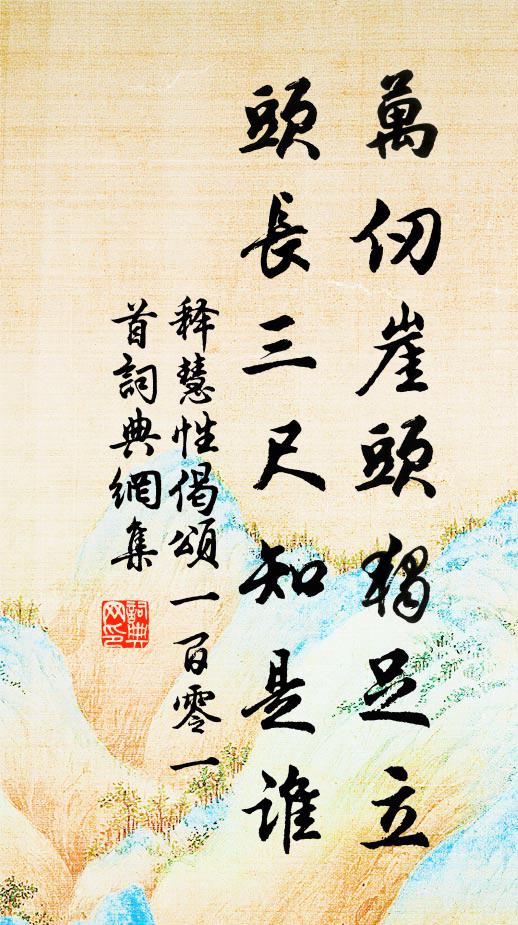 萬仞崖頭獨足立
頭長三尺知是誰
釋慧性偈頌一百零一
首詞典網集
詞典
网印